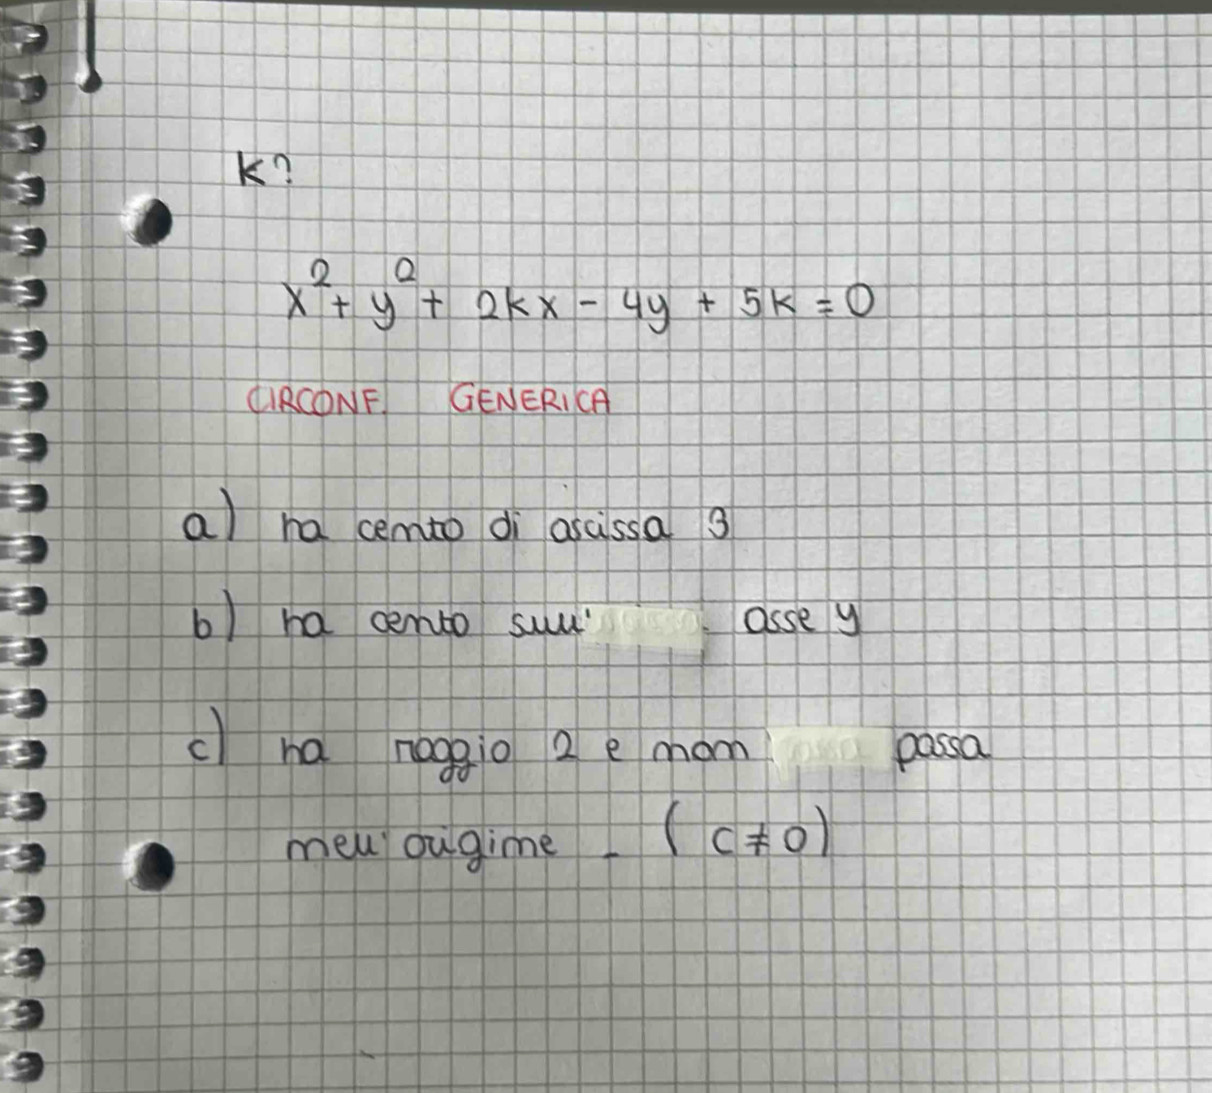 K?
x² + y² + 2kx - 4y + 5k = 0
CIRCONF. GENERICA
a) ha centro di ascissa 3
b) ha centro sull' asse y
c) ha raggio 2 e non passa
nell'origine - (c≠0)